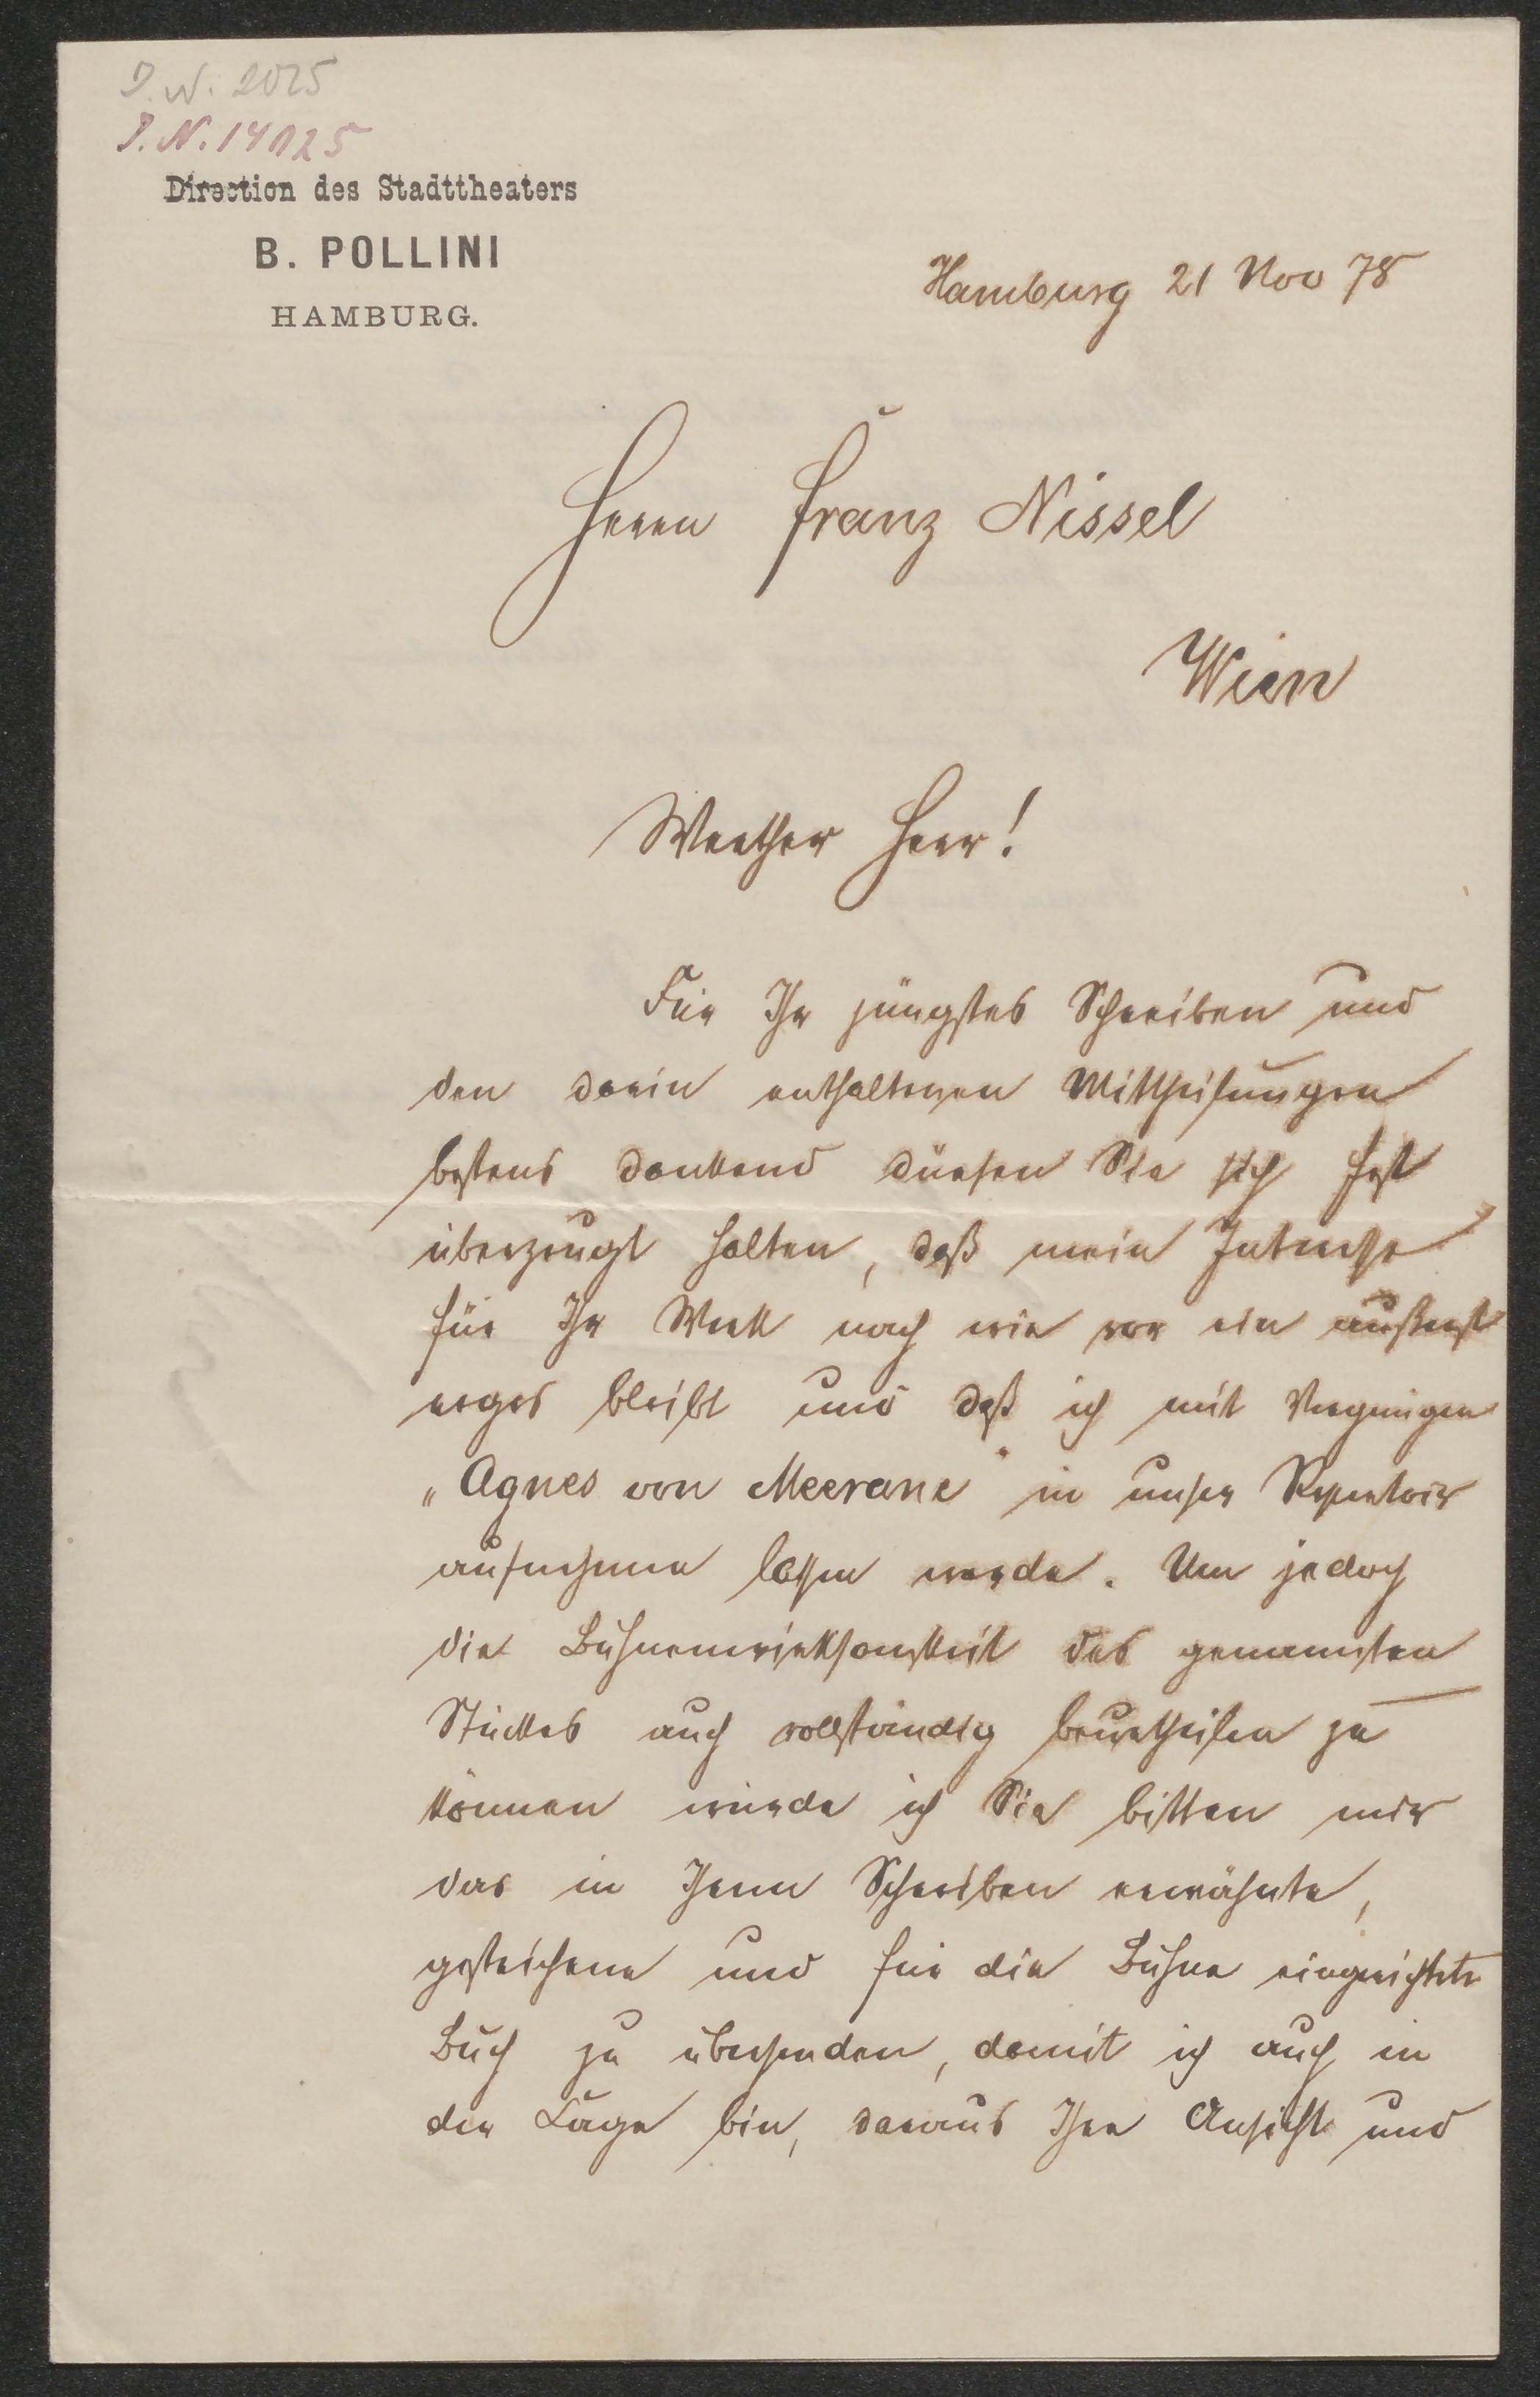 J. N. 2025
J. N. 14025
Direction des Stadttheaters
B. POLLINI
HAMBURG.
Hamburg 21 Nov 78
Herrn Franz Nissel
Wien
Werther Herr!
Für Ihr jüngstes Schreiben und
den darin enthaltenen Mittheilungen
bestens dankend dürfen Sie sich fest
überzeugt halten, daß mein Interesse
für Ihr Werk nach wie vor ein äußerst
reges bleibt und daß ich mit Vergnügen
„Agnes von Meerane" in unser Repertoir
aufnehmen lassen werde. Um jedoch
die Bühnenwirksamkeit des genannten
Stückes auch vollständig beurtheilen zu
können würde ich Sie bitten mir
das in Ihrem Schreiben erwähnte,
gestrichene und für die Bühne eingerichtete
Buch zu übersenden, damit ich auch in
der Lage bin, daraus Ihre Ansicht und